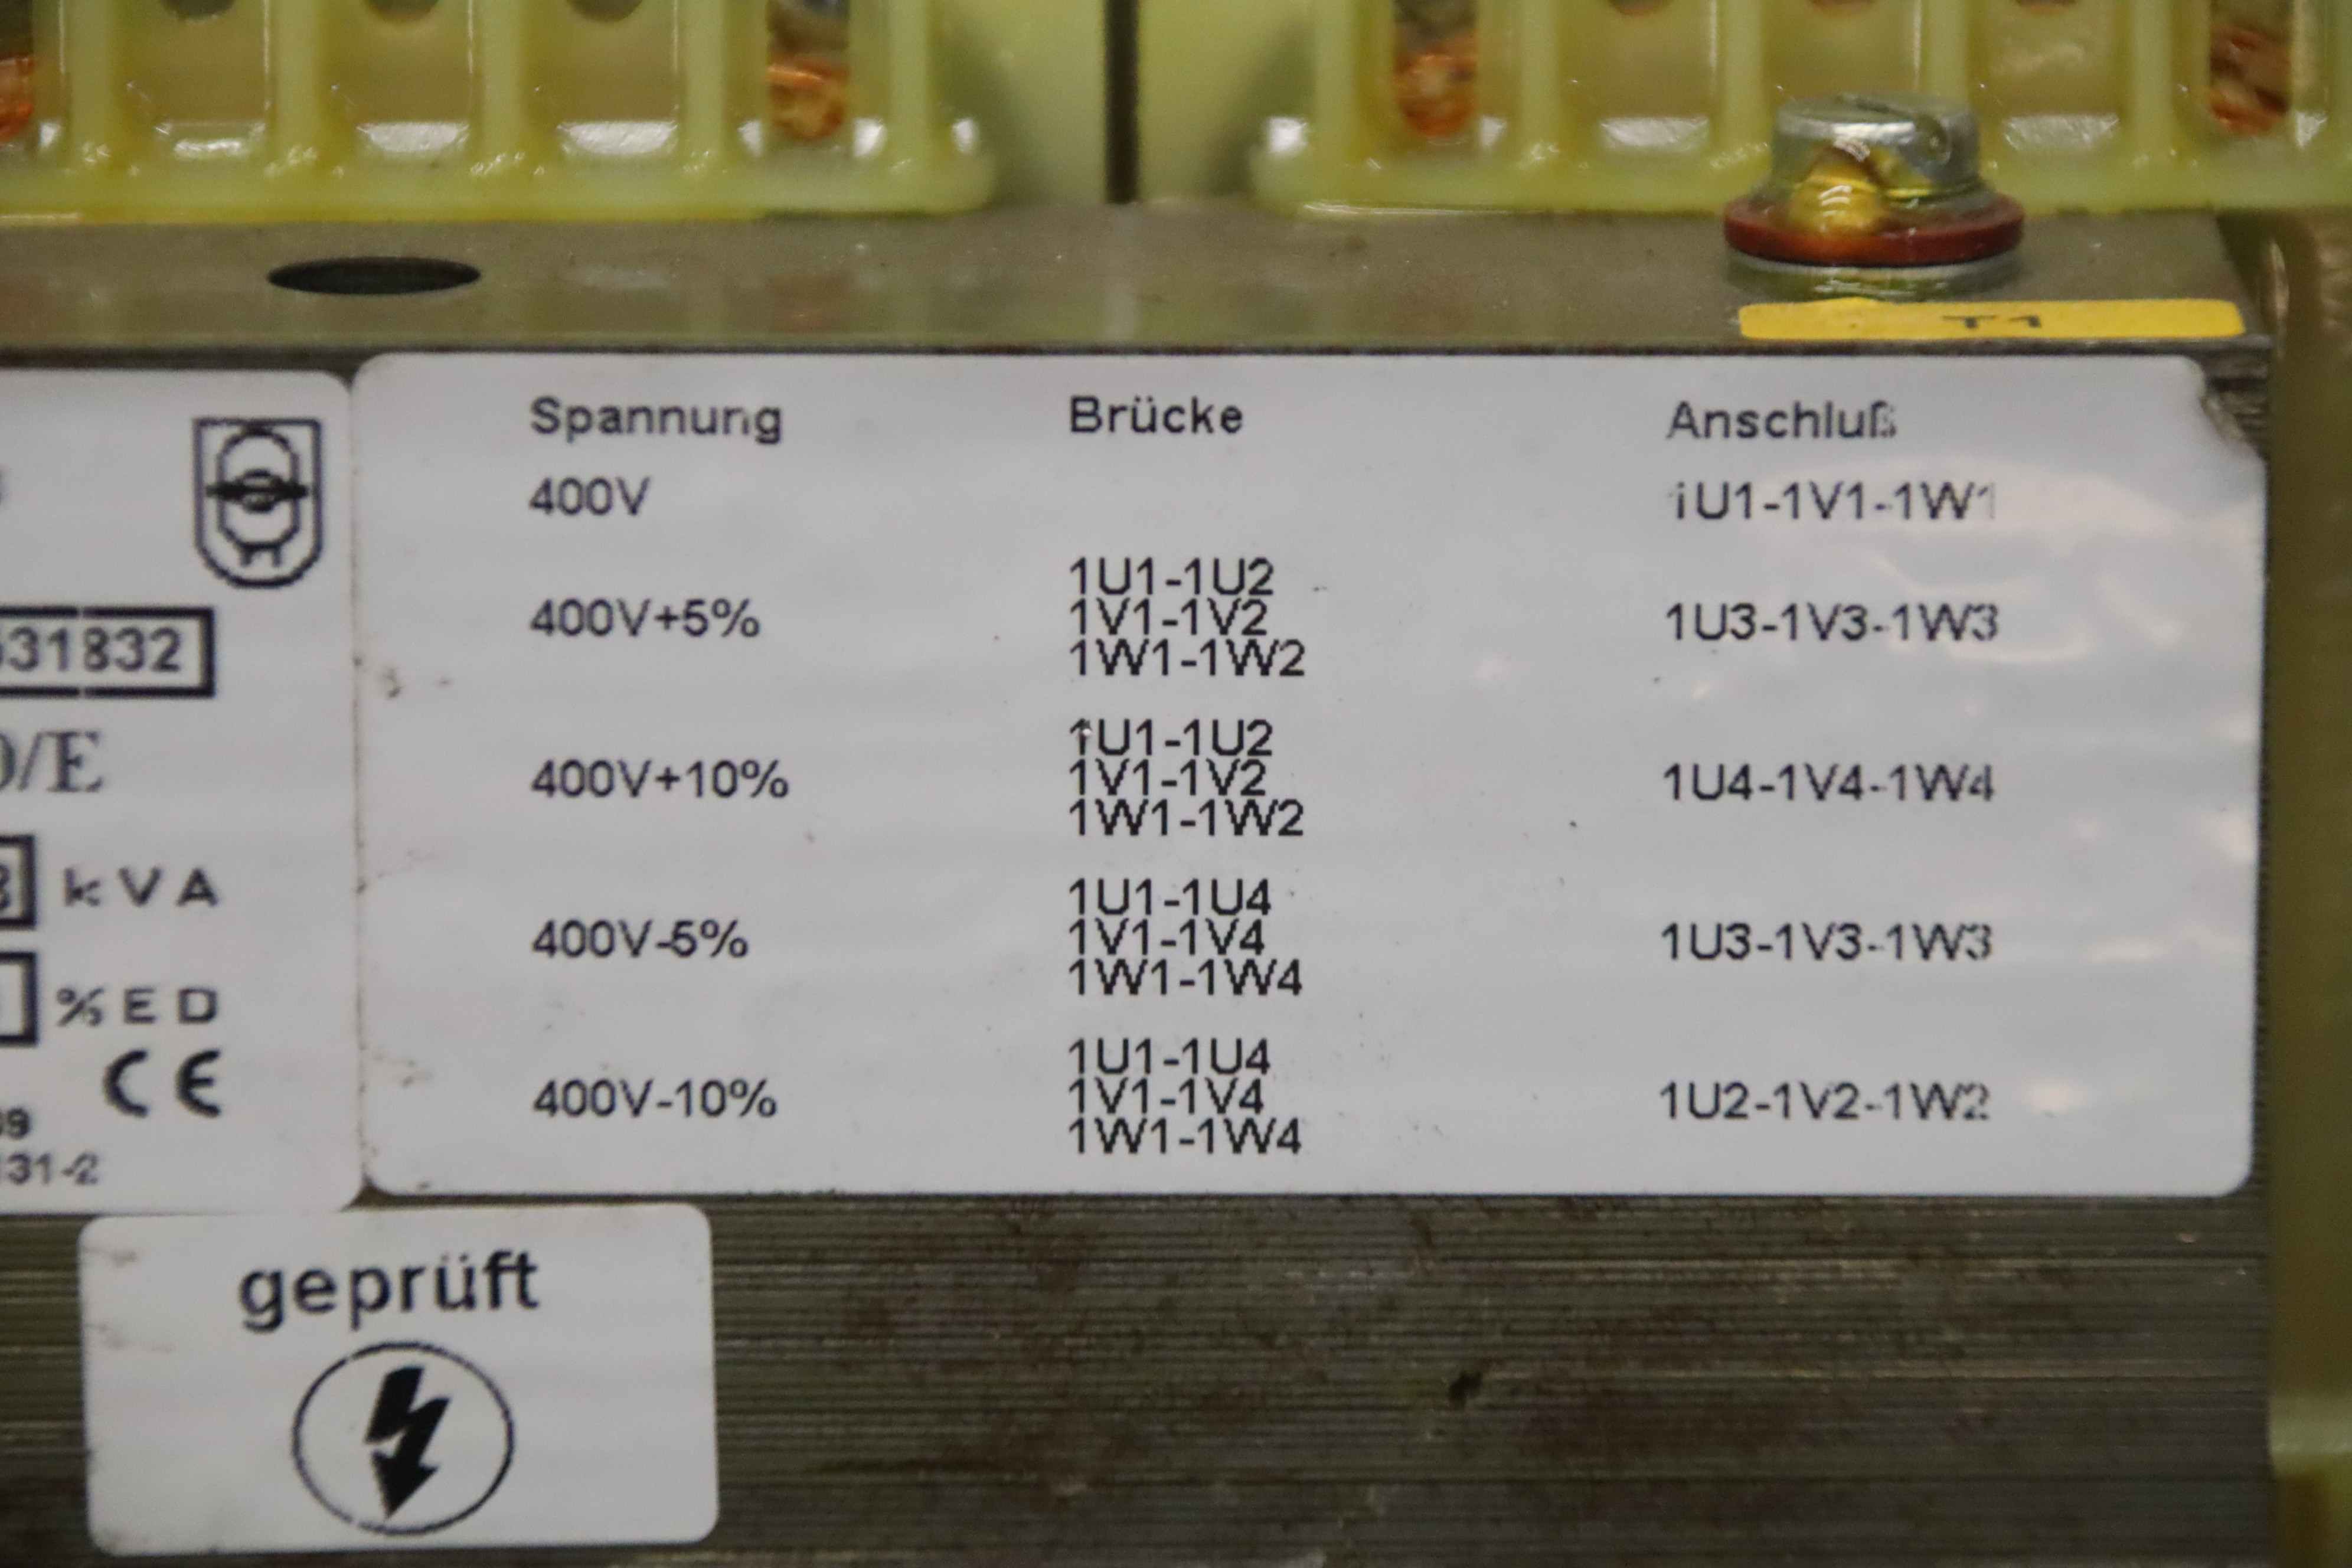 T1
Spannung Brücke Anschluß
400V 1U1-1V1-1W1
1U1-1U2
400V+5% 1V1-1V2 1U3-1V3-1W3
1W1-1W2
1U1-1U2
400V+10% 1V1-1V2 1U4-1V4-1W4
1W1-1W2
1U1-1U4
400V-5% 1V1-1V4 1U3-1V3-1W3
1W1-1W4
1U1-1U4
400V-10% 1V1-1V4 1U2-1V2-1W2
1W1-1W4
31832
/E
kVA
%ED
CE
09
131-2
geprüft